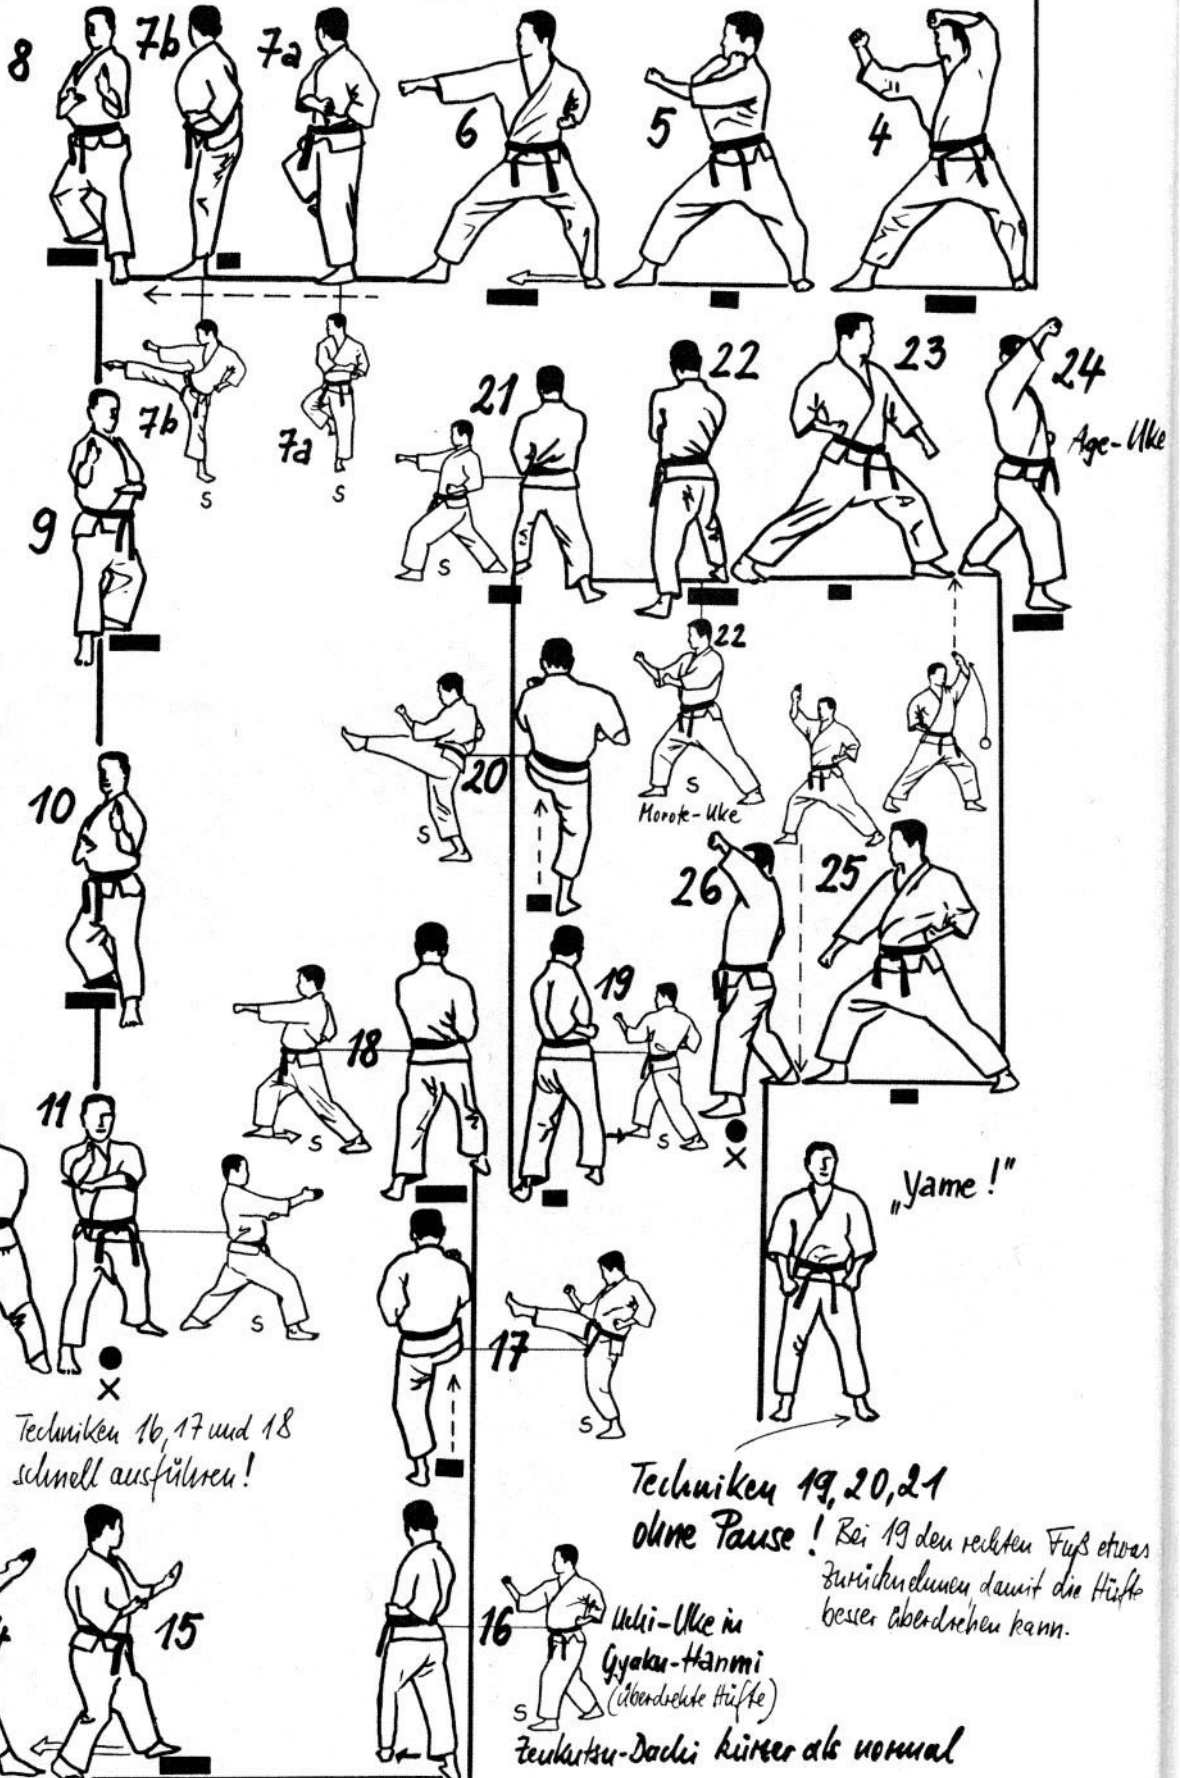 8
7b
7a
6
5
4
7b
S
7a
S
9
21
S
22
23
24
Age-Uke
22
S
Morote-Uke
20
S
10
26
25
18
S
19
S
X
11
S
X
„Yame!"
17
S
Techniken 16, 17 und 18
schnell ausführen!
Techniken 19, 20, 21
ohne Pause! Bei 19 den rechten Fuß etwas
zurücknehmen, damit die Hüfte
besser überdrehen kann.
15
16
S
Uchi-Uke in
Gyaku-Hanmi
(überdrehte Hüfte)
Zenkutsu-Dachi kürzer als normal